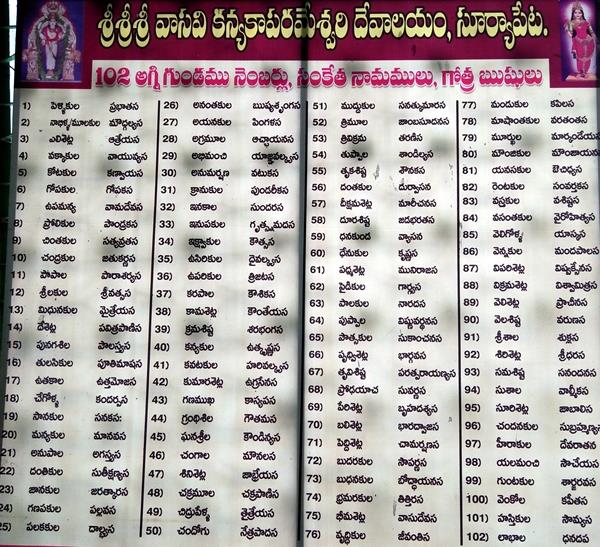 శ్రీశ్రీశ్రీ వాసవి కన్యకాపరమేశ్వరి దేవాలయం, సూర్యాపేట.
102 అగ్ని గుండము నెంబర్లు, సంకేత నామములు, గోత్ర ఋషులు
1) పెళ్ళికుల ప్రభాతస
2) నాభిళ్ళ/మూలకుల మౌద్గల్యస
3) ఎలిశెట్ల ఆత్రేయస
4) వక్కాకుల వాయువ్యస
5) కోటకుల కణ్వాయస
6) గోపకుల గోపకస
7) ఉపమన్య వామదేవస
8) ప్రోలికుల పాండ్రకస
9) చింతకుల సత్యవ్రతస
10) చంద్రకుల జతుకర్ణస
11) పోపాల పారాశర్యస
12) శ్రీలకుల శ్రీవత్సస
13) మిధునకుల మైత్రేయస
14) దేశెట్ల పవిత్రపాణిస
15) పునగశిల పౌలస్త్యస
16) తులసికుల పూతిమాషస
17) ఉత్తకాల ఉత్తమోజస
18) చేగోళ్ళ కందర్పస
19) సానకుల సనకస:
20) మన్యకుల మానవస
21) అనుపాల అగస్త్యస
22) దంతికుల సుతీక్షణ్యస
23) జానకుల జరత్కారస
24) గణపకుల పల్లవస
25) పలకకుల దాల్భ్యస
26) అనంతకుల ఋష్యశృంగస
27) అయనకుల పింగళస
28) అగ్రమూల ఆచ్ఛాయనస
29) అభిమంచి యాజ్ఞవల్క్యస
30) అమర్షణ వటుకస
31) క్రానుకుల పుండరీకస
32) ఇనకాల సుందరస
33) ఇనుపకుల గృత్స్నమదస
34) ఇక్ష్వాకుల కౌత్సస
35) ఉసిరికుల దైవల్యస
36) ఉపరికుల త్రిజటస
37) కరపాల కౌశికస
38) కామశెట్ల కౌంతేయస
39) క్రమశిష్ట శరభంగస
40) కన్యకుల ఉత్కృష్టస
41) కవటకుల హరివల్క్యస
42) కుమారశెట్ల ఉగ్రసేనస
43) గణముఖి కాస్యపస
44) గ్రంథిశిల గౌతమస
45) ఘనశ్రీల కౌండిన్యస
46) చంగాల మౌనలస
47) శినిశెట్ల జాబ్రేయస
48) చక్రమూల చక్రపాణిస
49) చిద్రుపేళ్ళ త్రైత్రేయస
50) చందోగు నేత్రపాదస
51) ముద్దుకుల సనత్కుమారస
52) త్రిమూల జాంబసూదనస
53) త్రివిక్రమ తరణిస
54) తుప్పాల శాండిల్యస
55) తృకశిష్ట శౌనకస
56) దంతకుల దుర్వాసస
57) దీక్షమశెట్ల మారీచనస
58) దూరశిష్ట జడభరతస
59) ధనకుండ వ్యాసస
60) ధేనుకుల కృష్ణస
61) పద్మశెట్ల మునిరాజస
62) పైడికుల గార్గ్యస
63) పాలకుల నారదస
64) పుప్పాల విష్ణువర్థనస
65) పొత్సకుల సుకాంచనస
66) పృధ్విశెట్ల భార్గవస
67) తృవిశిష్ట పరత్పరాయణ్యస
68) ప్రోఢయాచ సువర్ణస
69) పేరిశెట్ల బృహదశ్వస
70) బలిశెట్ల భారద్వాజస
71) పిద్దిశెట్ల చామర్షణస
72) బుదరకుల సౌపర్ణస
73) బుధనకుల బోద్ధాయనస
74) భ్రమరకుల తిత్తిరిస
75) భీమశెట్ల వాసుదేవస
76) వృద్ధికుల జీవంతిస
77) మందుకుల కపిలస
78) మాషాంతకుల వరతంతస
79) మూర్ఖుల మార్కండేయస
80) మౌంజికుల మౌంజాయనస
81) యనసకుల ఔచిధ్యస
82) రెంటకుల సంవర్తకస
83) వస్త్రకుల వశిష్టస
84) వసంతకుల వైరోహిత్యస
85) వెలిగోళ్ళ యాస్యస
86) వెన్నకుల మందపాలస
87) విపరిశెట్ల విష్వక్సేనస
88) విక్రమశెట్ల విశ్వామిత్రస
89) వెలిశెట్ల ప్రాచీనస
90) వెలశిష్ట వరుణస
91) శ్రీశాల శుక్లస
92) శిరిశెట్ల శ్రీధరస
93) సమశిష్ట సనందనస
94) సుశాల వాల్మీకస
95) సూరిశెట్ల జాబాలిస
96) చందనకుల సుబ్రహ్మణ్యస
97) హీరాకుల దేవరాతస
98) యలమంచి సౌచేయస
99) గుంటకుల శార్ఙరవస
100) వెంకోల కపితస
101) హస్తికుల సౌమ్యస
102) లాభాల ధనదస